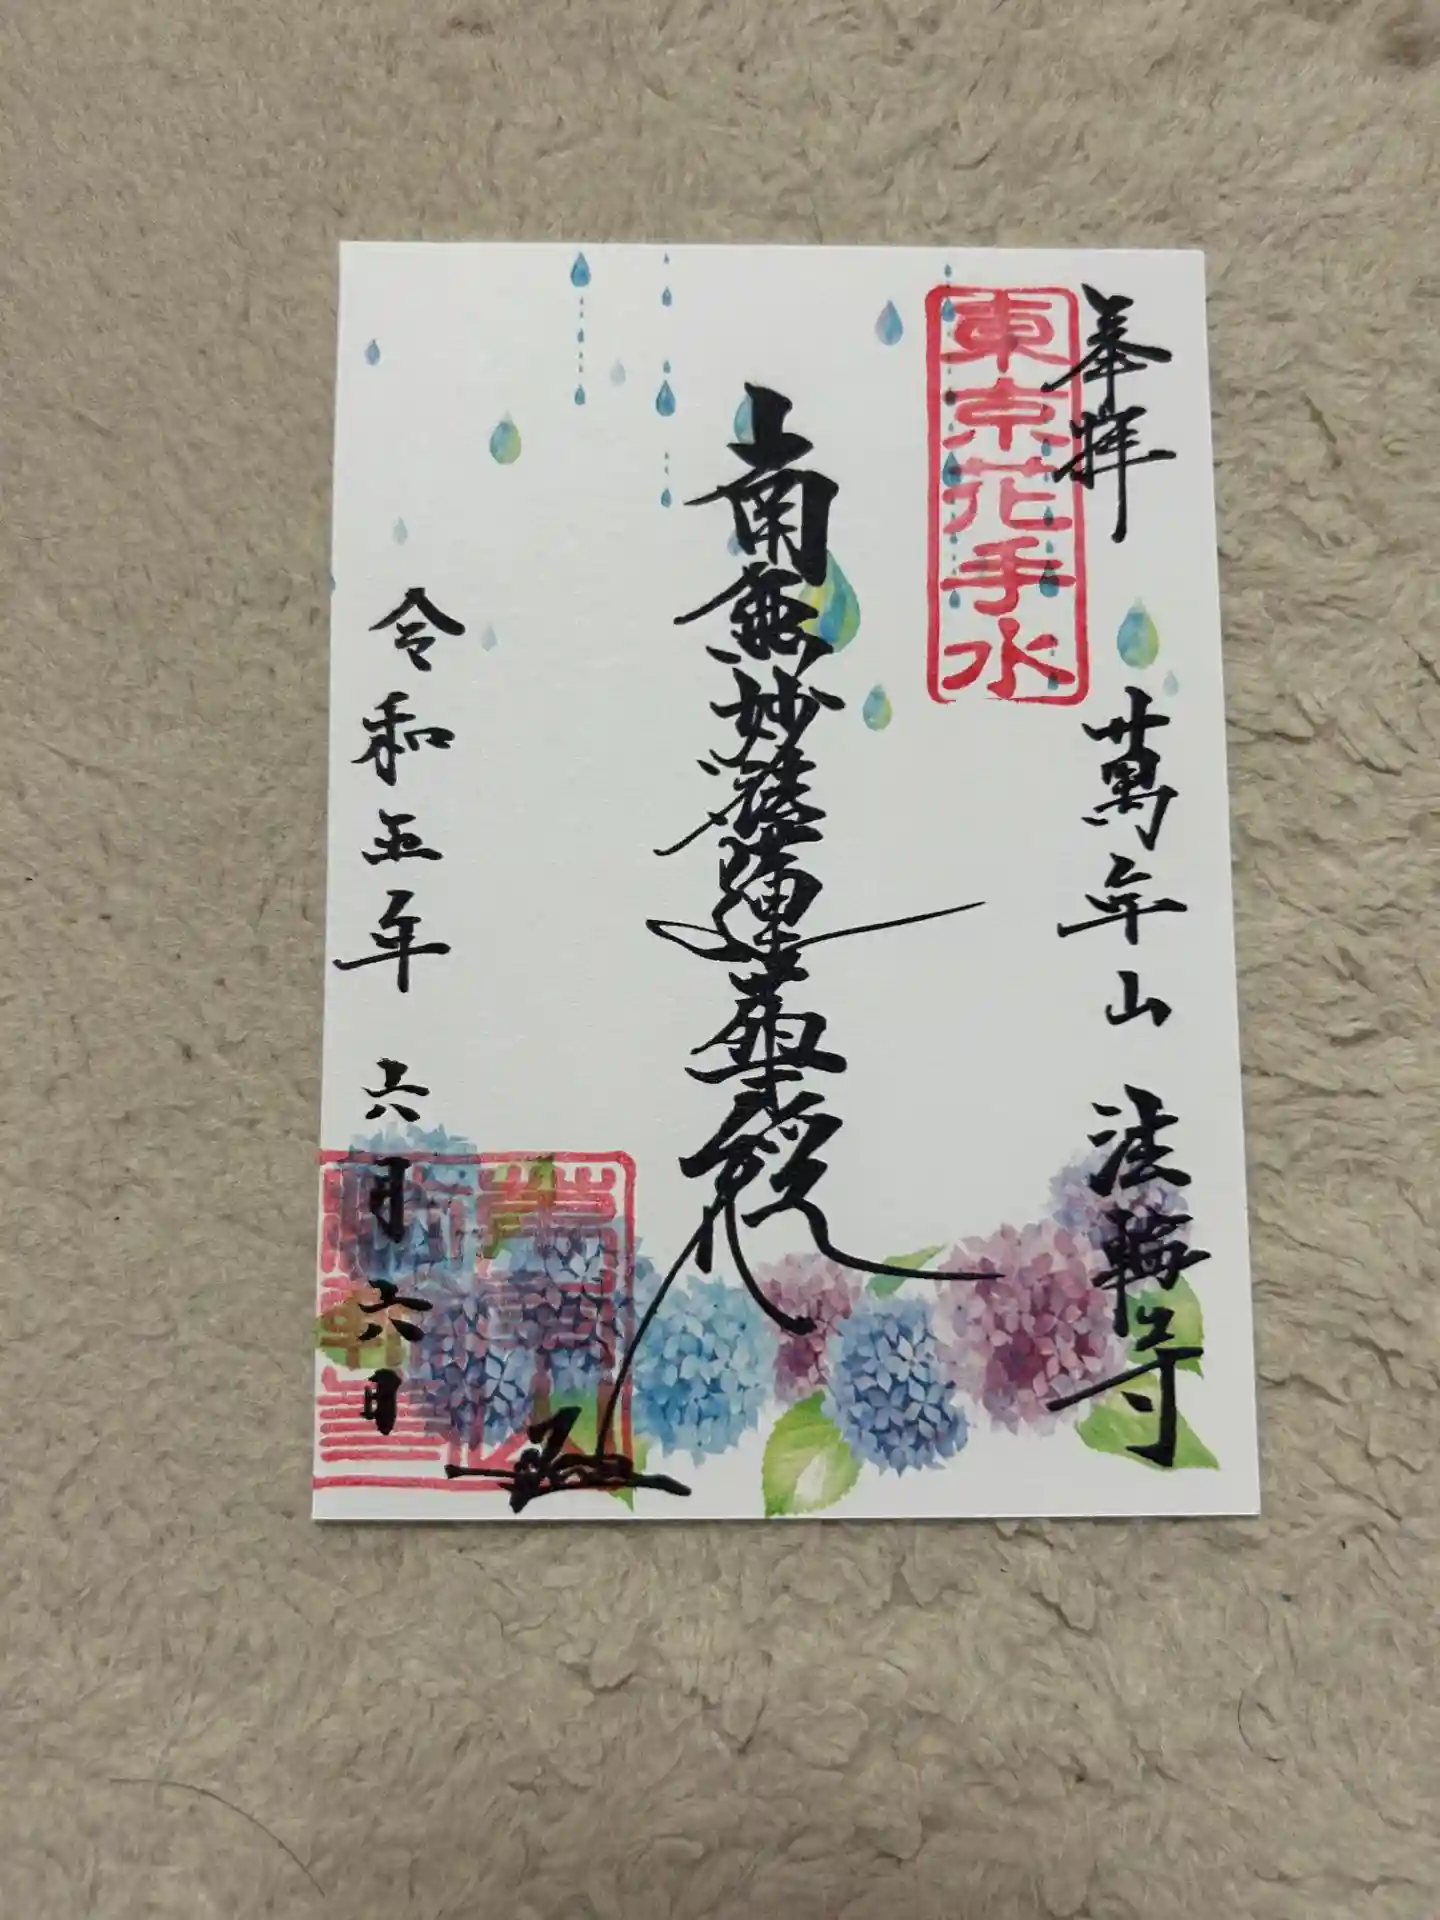 奉拝
萬年山 法輪寺
東京花手水
南無妙法蓮華経
令和五年 六月六日